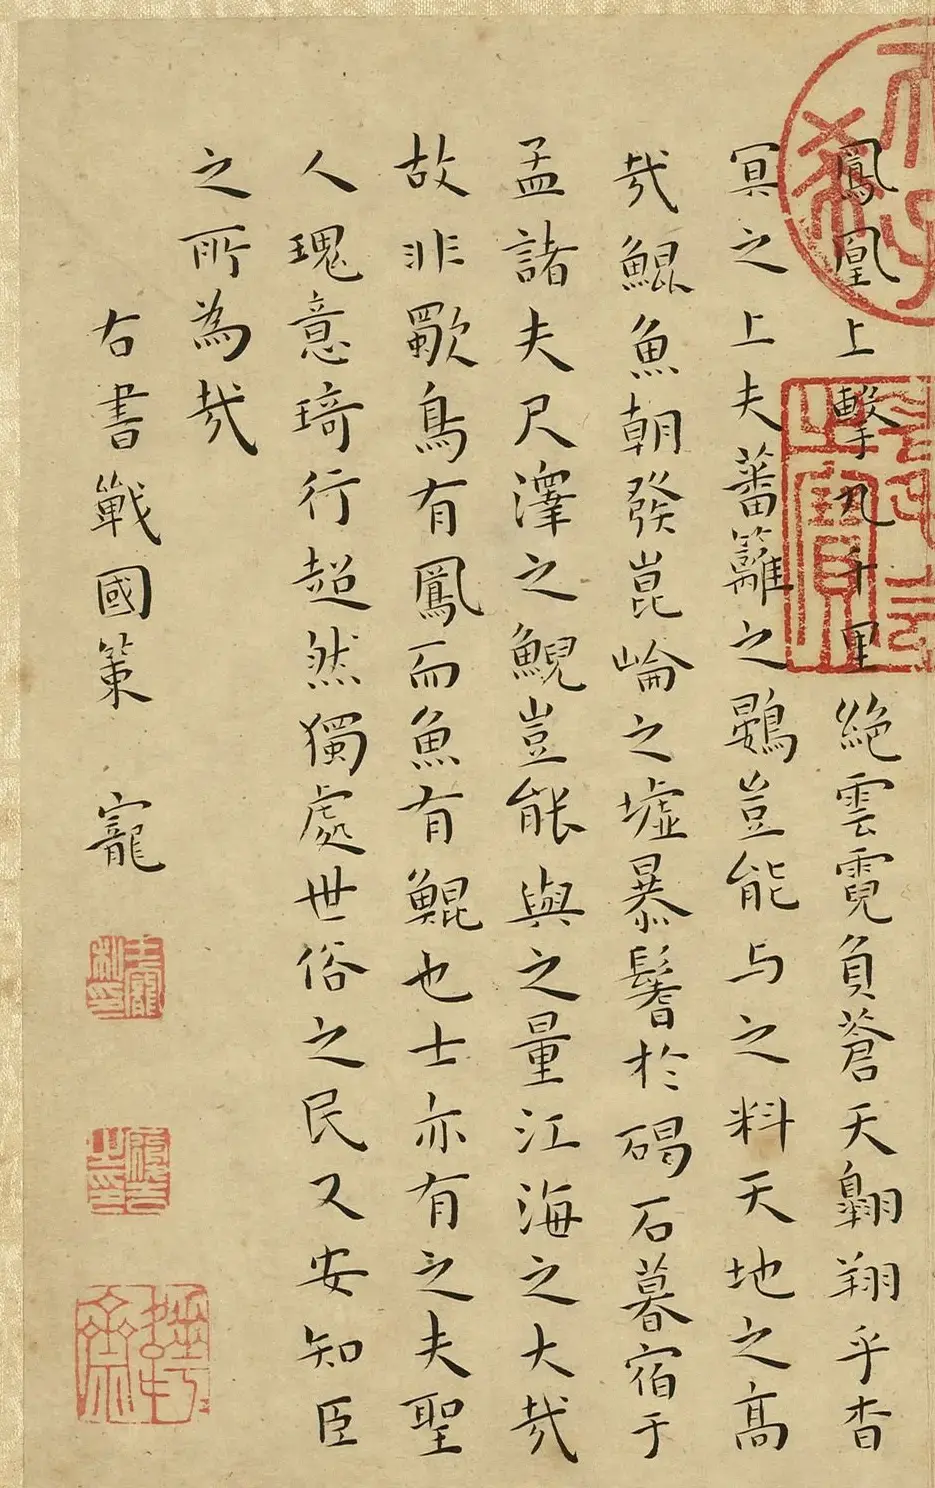 鳳凰上擊九千里絕雲霓負蒼天翱翔乎杳
冥之上夫蕃籬之鷃豈能与之料天地之高
哉鯤魚朝發崑崙之墟暴鬐於碣石暮宿于
孟諸夫尺澤之鯢豈能與之量江海之大哉
故非獨鳥有鳳而魚有鯤也士亦有之夫聖
人瑰意琦行超然獨處世俗之民又安知臣
之所為哉
右書戰國策 寵
王寵私印
履吉之印